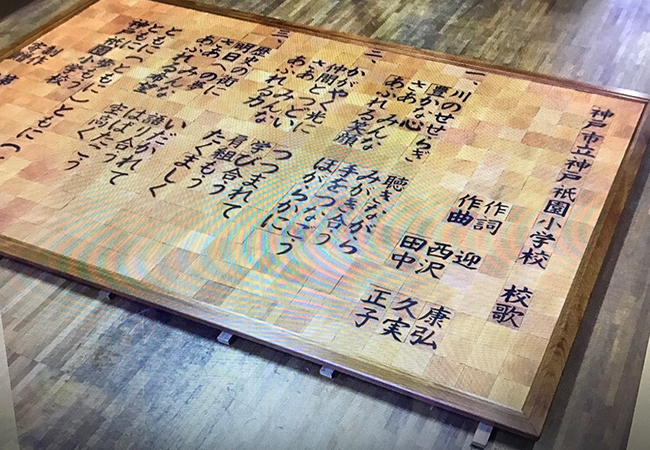 神戸市立神戸祇園小学校 校歌
作詞 迎 康弘
西沢 久実
作曲 田中 正子
一、川のせせらぎ 聴きながら
豊かな心 みがき合う
さあ みんな 手をつなごう
あふれる笑顔 ほがらかに
二、かがやく光に つつまれて
仲間とつどい 学び合って
さあ みんな 肩組もう
あふれる力 たくましく
三、歴史の街に いだかれて
明日への夢 語り合う
さあ みんな はばたこう
あふれる希望 空高く
ともに歩もう ともに
神戸祇園小学校
制作